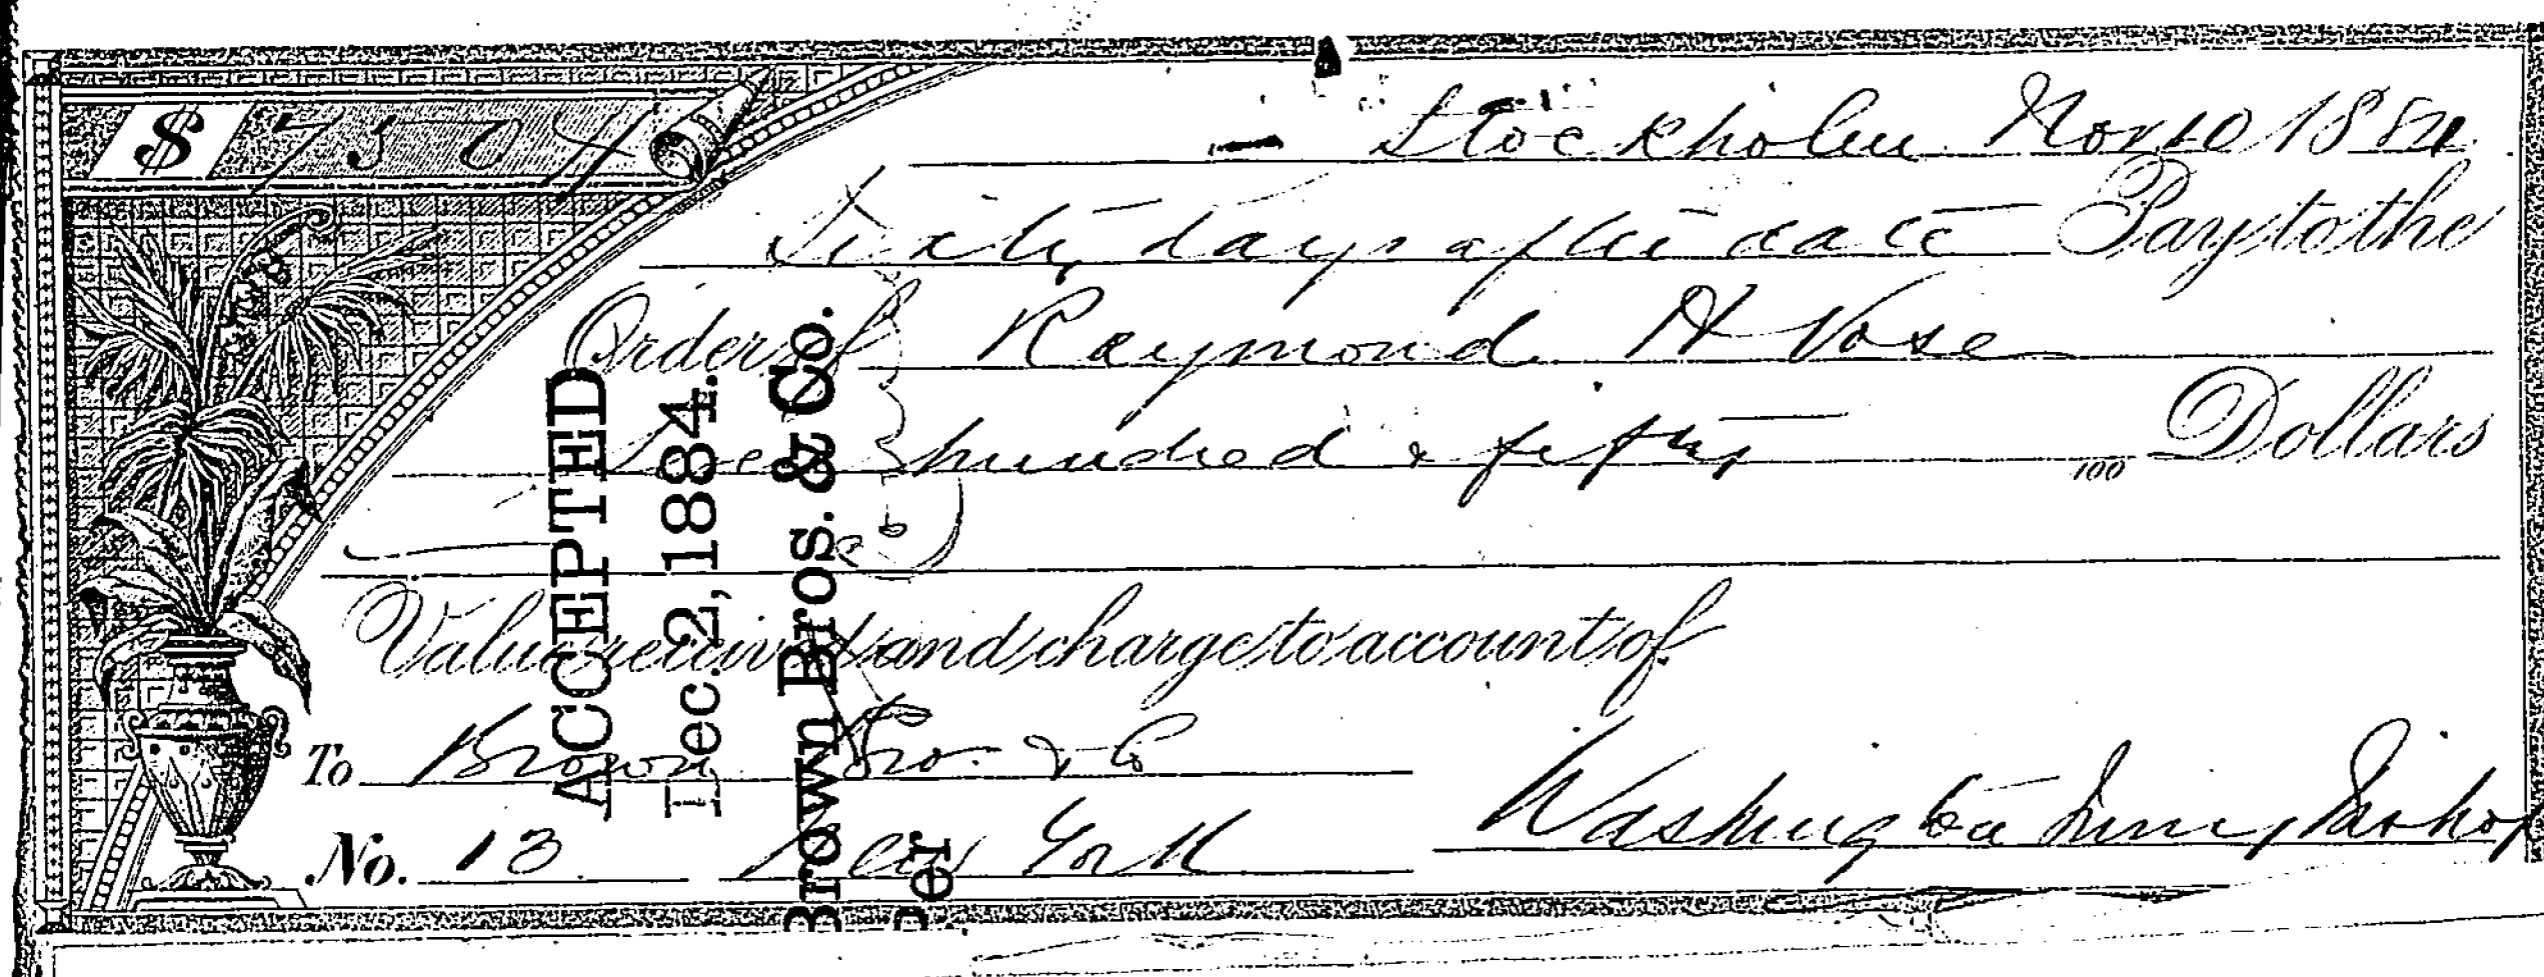 $ 750
Stockholm Nov 10 1884
Sixty days after date Pay to the
Order of Raymond H Vose
hundred & fifty 100 Dollars
Value received and charge to account of
To Brown Bro. & Co
No. 13 New York
Washington Irving Bishop
ACCEPTED
Dec. 2, 1884.
Brown Bros. & Co.
Per